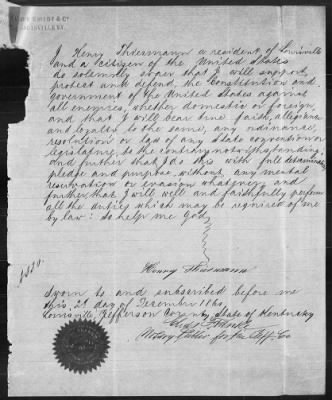 I Henry Thiermann a resident of Louisville
and a citizen of the United States
do solemnly swear that I will support,
protect and defend the Constitution and
government of the United States against
all enemies, whether domestic or foreign,
and that I will bear true faith, allegiance
and loyalty to the same, any ordinance,
resolution or law of any State convention or
legislature, to the contrary notwithstanding,
and further that I do this with full determination,
pledge and purpose, without any mental
reservation or evasion whatsoever and
further that I will well and faithfully perform
all the duties which may be required of me
by law: So help me God,
Henry Thiermann
Sworn to and subscribed before me
this 21 day of December
Louisville, Jefferson County State of Kentucky
Notary Public for